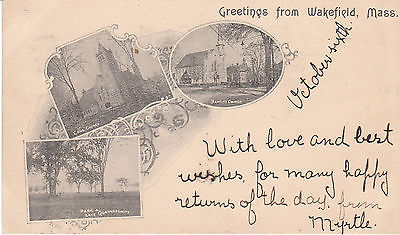 Greetings from Wakefield, Mass.
October sixth
Baptist Church
With love and best
wishes for many happy
returns of the day. from
Myrtle.
Park &
Lake Quannapowitt